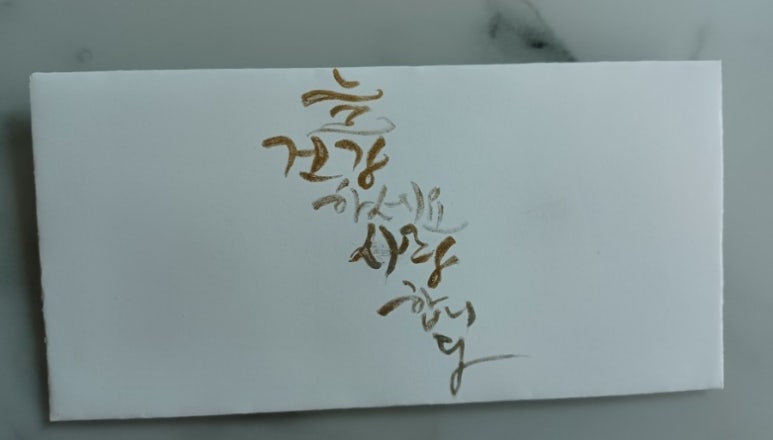 늘
건강
하세요
사랑
합니
다